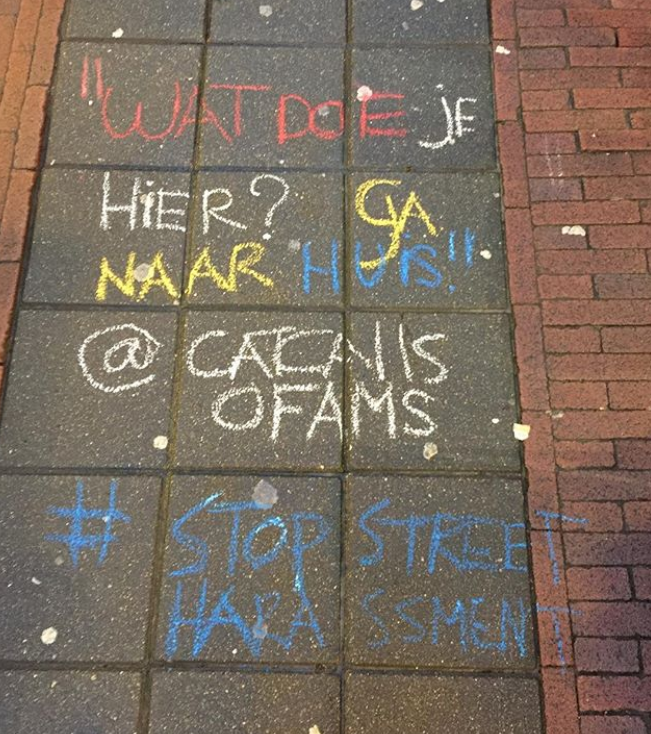 "WAT DOE JE
HiER? GA
NAAR HUiS!"
@CATCALLS
OFAMS
# STOP STREET
HARASSMENT